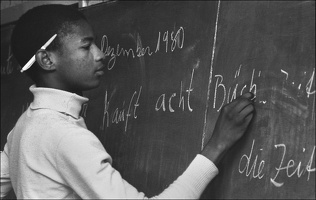 Dezember 1980
Kauft acht Büch. Zeit
die Zeit